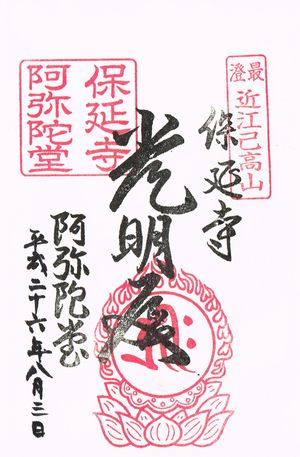 最澄
近江己高山
保延寺
光明殿
保延寺
阿弥陀堂
阿弥陀堂
平成二十六年八月三日